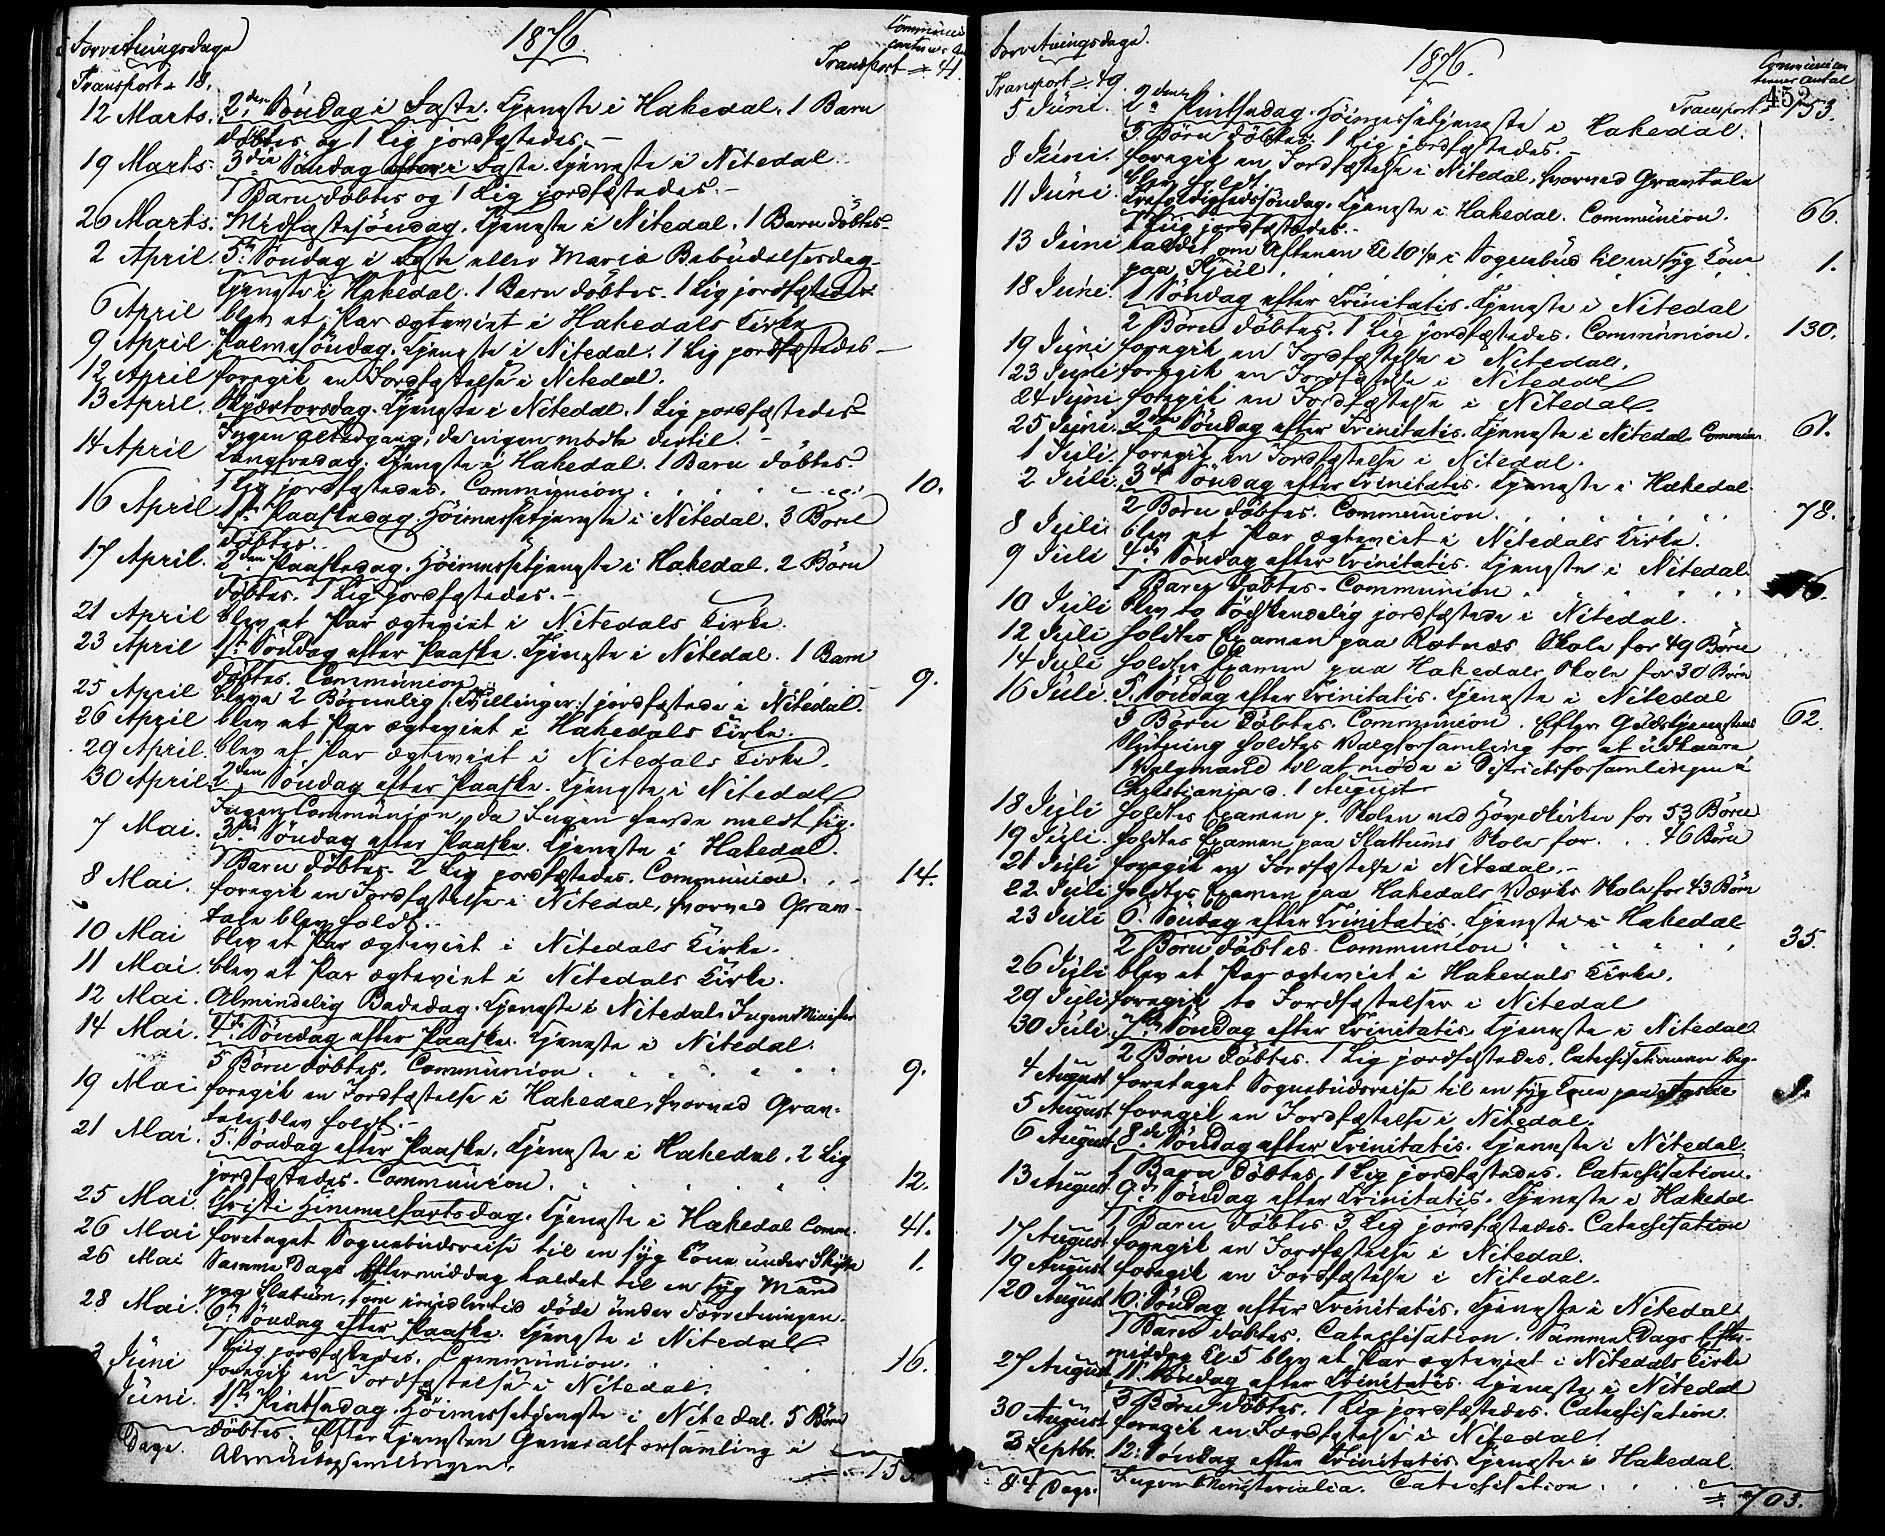 Forretningsdage
1876.
Communicantternes An
Transport 18.
Transport = 41.
12 Marts. 2den Söndag i Faste. Tjeneste i Hakedal. 1 Barn
döbtes og 1 Lig jordfæstedes.
19 Marts. 3die Söndag i Faste. Tjeneste i Nitedal.
1 Barn döbtes og 1 Lig jordfæstedes.
26 Marts. Midfastesöndag. Tjeneste i Nitedal. 1 Barn döbtes
2 April. 5te Söndag i Faste eller Mariæ Bebudelsesdag
Tjeneste i Hakedal. 1 Barn döbtes. 1 Lig jordfæstedes
6 April blev et Par ægteviet i Hakedals Kirke
9 April. Palmesöndag. Tjeneste i Nitedal. 1 Lig jordfæstedes
12 April foregik en Jordfæstelse i Nitedal.
13 April. Skjærtorsdag. Tjeneste i Nitedal. 1 Lig jordfæstedes
Ingen Altergang, da ingen mödte dertil.
14 April Langfredag. Tjeneste i Hakedal. 1 Barn döbtes.
1 Lig jordfæstedes. Communion. 10.
16 April 1ste Paaskedag. Höimessetjeneste i Nitedal. 3 Börn
döbtes.
17 April. 2den Paaskedag. Höimessetjeneste i Hakedal. 2 Börn
döbtes. 1 Lig jordfæstedes.
21 April blev et Par ægteviet i Nitedals Kirke.
23 April 1ste Söndag efter Paaske. Tjeneste i Nitedal. 1 Barn
döbtes. Communion 9.
25 April bleve 2 Börnelig /: Tvillinger :/ jordfæstede i Nitedal.
26 April blev et Par ægteviet i Hakedals Kirke.
29 April. blev et Par ægteviet i Nitedals Kirke.
30 April 2den Söndag efter Paaske. Tjeneste i Nitedal
Ingen Communion, da Ingen havde meldt sig.
7 Mai. 3die Söndag efter Paaske. Tjeneste i Hakedal.
1 Barn döbtes. 2 Lig jordfæstedes. Communion. 14.
8 Mai. foregik en Jordfæstelse i Nitedal, hvorved Grav-
tale blev holdt.
10 Mai blev et Par ægteviet i Nitedals Kirke.
11 Mai blev et Par ægteviet i Nitedals Kirke.
12 Mai. Almindelig Bededag. Tjeneste i Nitedal. Ingen Minister
14 Mai. 4de Söndag efter Paaske. Tjeneste i Nitedal.
5 Börn döbtes. Communion. 9.
19 Mai foregik en Jordfæstelse i Hakedal, hvorved Grav-
tale blev holdt.
21 Mai. 5. Söndag efter Paaske. Tjeneste i Hakedal. 2 Lig
jordfæstedes. Communion. 12.
25 Mai. Christi Himmelfartsdag. Tjeneste i Hakedal Comm. 41.
26 Mai foretaget Sognebudsreise til en syg Kone under 1.
26 Mai Samme Dags Eftermiddag kaldet til en syg Mand
paa Slatum, som imidlertid döde under Forretningen.
28 Mai. 6te Söndag efter Paaske. Tjeneste i Nitedal
1 Lig jordfæstedes. Communion. 16.
Juni foregik en Jordfæstelse i Nitedal.
Juni. 1ste Pintsedag. Höimessetjeneste i Nitedal. 5 Börn
döbtes. Efter Tjenesten Generalforsamling i
Dage. Almuebogsamlingen.
= 153.
Forretningsdage.
1876.
Communicanternes Antal
452
Transport = 49.
Transport 153.
5 Juni. 2den Pintsedag. Höimessetjeneste i Hakedal.
3 Börn döbtes. 1 Lig jordfæstedes.
8 Juni. foregik en Jordfæstelse i Nitedal, hvorved Gravtale
blev holdt.
11 Juni. Trefoldighedssöndag. Tjeneste i Hakedal. Communion. 66.
1 Lig jordfæstedes.
13 Juni kaldet om Aftenen Kl 10 1/4 i Sognebud til en syg Kone
paa Kjul 1.
18 Juni. 1 Söndag efter Trinitatis. Tjeneste i Nitedal
2 Börn döbtes. 1 Lig jordfæstedes. Communion. 130.
19 Juni foregik en Jordfæstelse i Nitedal.
23 Juni foregik en Jordfæstelse i Nitedal
24 Juni foregik en Jordfæstelse i Nitedal.
25 Juni. 2den Söndag efter Trinitatis. Tjeneste i Nitedal. Commun. 61.
1 Juli. foregik en Jordfæstelse i Nitedal.
2 Juli. 3die Söndag efter Trinitatis. Tjeneste i Hakedal
2 Börn döbtes. Communion. 78.
8 Juli. blev et Par ægteviet i Nitedals Kirke.
9 Juli 4de Söndag efter Trinitatis. Tjeneste i Nitedal.
1 Barn döbtes. Communion
10 Juli blev to Födskendelig jordfæstede i Nitedal.
12 Juli holdtes Examen paa Rotnæs Skole for 49 Börn
14 Juli holdtes Examen paa Hakedals Skole for 30 Börn
16 Juli. 5. Söndag efter Trinitatis. Tjeneste i Nitedal
3 Börn döbtes. Communion. Efter Gudstjenestens 62.
Slutning holdtes Valgforsamling for at udkaare
1 Valgmand til at möde i Districtsforsamlingen i
Christiania d. 1 August
18 Juli holdtes Examen p. Skolen ved Hovedkirken for 53 Börn
19 Juli. holdtes Examen paa Slattums Skole for 46 Börn
21 Juli foregik en Jordfæstelse i Nitedal.
22. Juli holdtes Examen paa Hakedals Værks Skole for 43 Börn
23 Juli 6. Söndag efter Trinitatis. Tjeneste i Hakedal
2 Börn döbtes. Communion 35.
26 Juli blev et Par ægteviet i Hakedals Kirke.
29 Juli foregik to Jordfæstelser i Nitedal
30 Juli. 7de Söndag efter Trinitatis. Tjeneste i Nitedal
2 Börn döbtes. 1 Lig jordfæstedes. Catechisationen beg.
4 August foretaget Sognebudsreise til en syg Kone paa 1.
5 August foregik en Jordfæstelse i Nitedal.
6 August. 8de Söndag efter Trinitatis. Tjeneste i Nitedal
1 Barn döbtes. 1 Lig jordfæstedes. Catechisation.
13 August 9de Söndag efter Trinitatis. Tjeneste i Hakedal
1 Barn döbtes. 3 Lig jordfæstedes. Catechisation
17 August foregik en Jordfæstelse i Nitedal.
19 August foregik en Jordfæstelse i Nitedal.
20 August 10. Söndag efter Trinitatis. Tjeneste i Nitedal
1 Barn döbtes. Catechisation. Samme Dags Efter-
middag Kl 5 blev et Par ægteviet i Nitedals Kirke
27 August 11. Söndag efter Trinitatis. Tjeneste i Nitedal
3 Börn döbtes. 1 Lig jordfæstedes. Catechisation.
30 August foregik en Jordfæstelse i Nitedal.
3 Septbr. 12. Söndag efter Trinitatis. Tjeneste i Hakedal
Ingen Ministerialia. Catechisation.
84 Dage.
= 703.